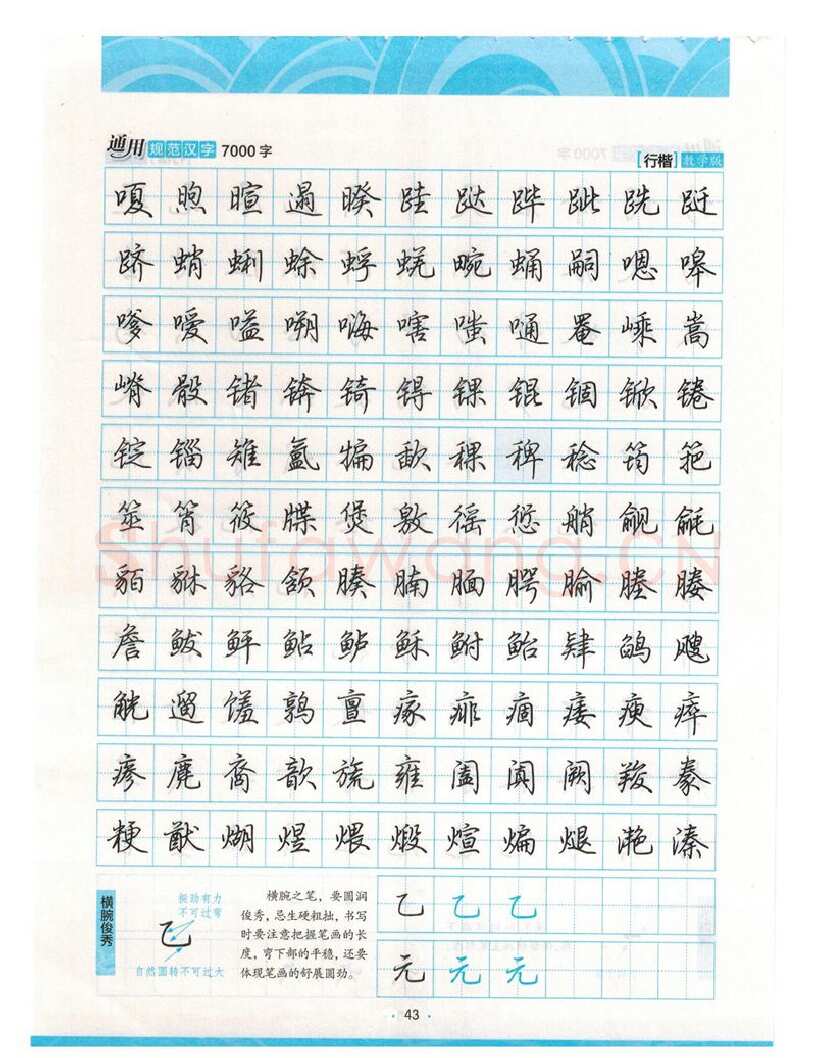 通用规范汉字 7000 字
[行楷] 教学版
嗄 煦 暄 遢 暌 跬 跶 跸 跐 跣 跹
跻 蛸 蜊 蜍 蜉 蜣 畹 蛹 嗣 嗯 嗥
嗲 嗳 嗌 嗍 嗨 嗐 嗤 嗵 罨 嵊 嵩
嵴 骰 锗 锛 锜 锝 锞 锟 锢 锨 锩
锭 锱 雉 氲 犏 歃 稞 稗 稔 筠 筢
筮 筲 筱 牒 煲 敫 徭 愆 艄 觎 毹
貊 貅 貉 颔 腠 腩 腼 腭 腧 塍 媵
詹 鲅 鲆 鲇 鲈 稣 鲋 鲐 肆 鹐 飕
觥 遛 馐 鹑 亶 瘃 痱 痼 痿 瘐 瘁
瘆 麂 裔 歆 旒 雍 阖 阗 阙 羧 豢
粳 猷 煳 煜 煨 煅 煊 煸 煺 滟 溱
横腕俊秀
挺劲有力
不可过弯
乙
自然圆转不可过大
横腕之笔，要圆润
俊秀，忌生硬粗拙，书写
时要注意把握笔画的长
度。弯下部的平稳，还要
体现笔画的舒展圆劲。
乙 乙 乙
元 元 元
· 43 ·
Shufawang.CN